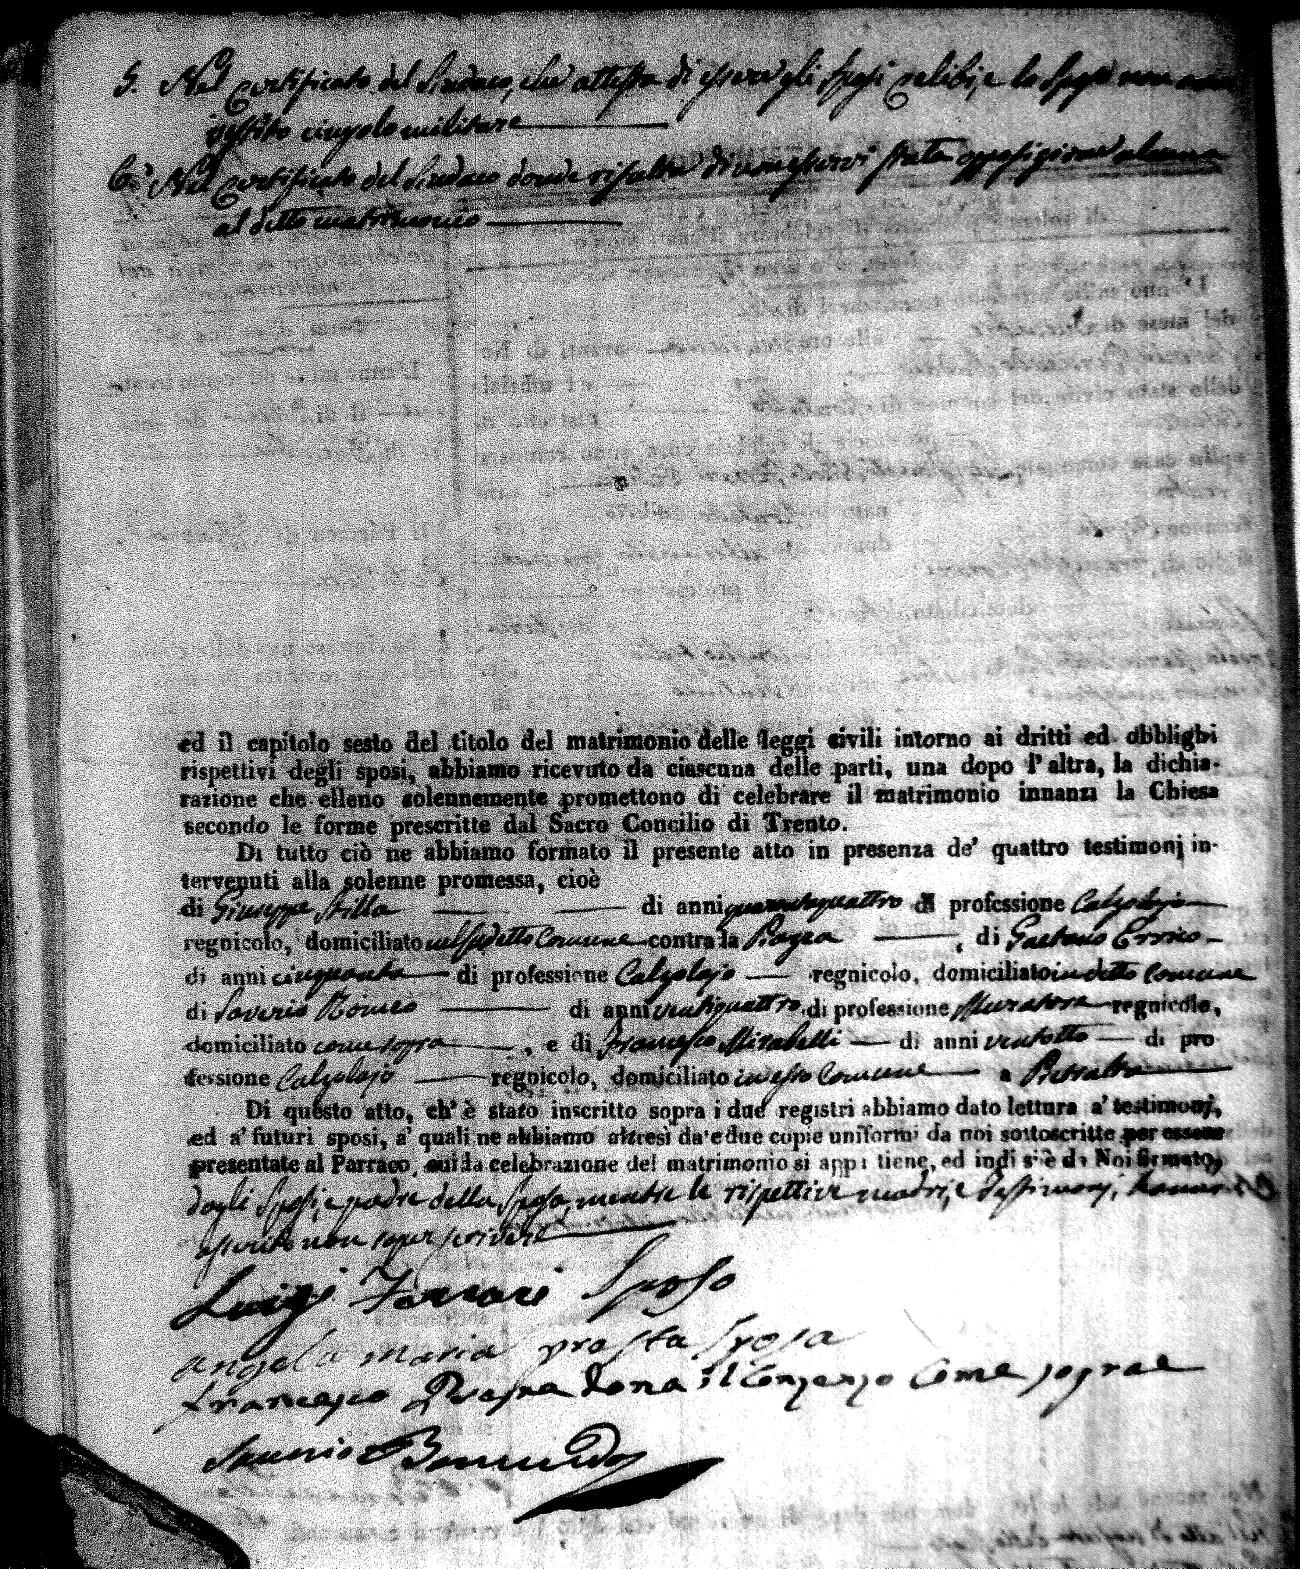 5. Nel certificato del Sindaco, che attesta di essere gli sposi celibi, e lo sposo non aver
vestito cingolo militare
6.° Nel certificato del Sindaco donde risulta di non esservi stata opposizione alcuna
al detto matrimonio
ed il capitolo sesto del titolo del matrimonio delle leggi civili intorno ai dritti ed obblighi
rispettivi degli sposi, abbiamo ricevuto da ciascuna delle parti, una dopo l'altra, la dichia-
razione che elleno solennemente promettono di celebrare il matrimonio innanzi la Chiesa
secondo le forme prescritte dal Sacro Concilio di Trento.
Di tutto ciò ne abbiamo formato il presente atto in presenza de' quattro testimonj in-
tervenuti alla solenne promessa, cioè
di Giuseppe Stilla di anni quarantaquattro di professione Calzolajo
regnicolo, domiciliato nel sudetto Comune contrada , di Gaetano Errico
di anni cinquanta di professione Calzolajo regnicolo, domiciliato in detto Comune
di Saverio Romeo di anni ventiquattro di professione Muratore regnicolo,
domiciliato come sopra , e di Francesco Mirabelli di anni ventotto di pro
fessione Calzolajo regnicolo, domiciliato in esso Comune a
Di questo atto, ch' è stato inscritto sopra i due registri abbiamo dato lettura a' testimonj,
ed a' futuri sposi, a' quali ne abbiamo altresì date due copie uniformi da noi sottoscritte per essere
presentate al Parroco, cui la celebrazione del matrimonio si appartiene, ed indi s'è da Noi firmato,
dagli Sposi, e padre della Sposa, mentre le rispettive madri, e testimonj, hanno
asserito non saper scrivere
Luigi Ferrari Sposo
angela maria sposa
Francesco dona il Conzenzo Come sopra